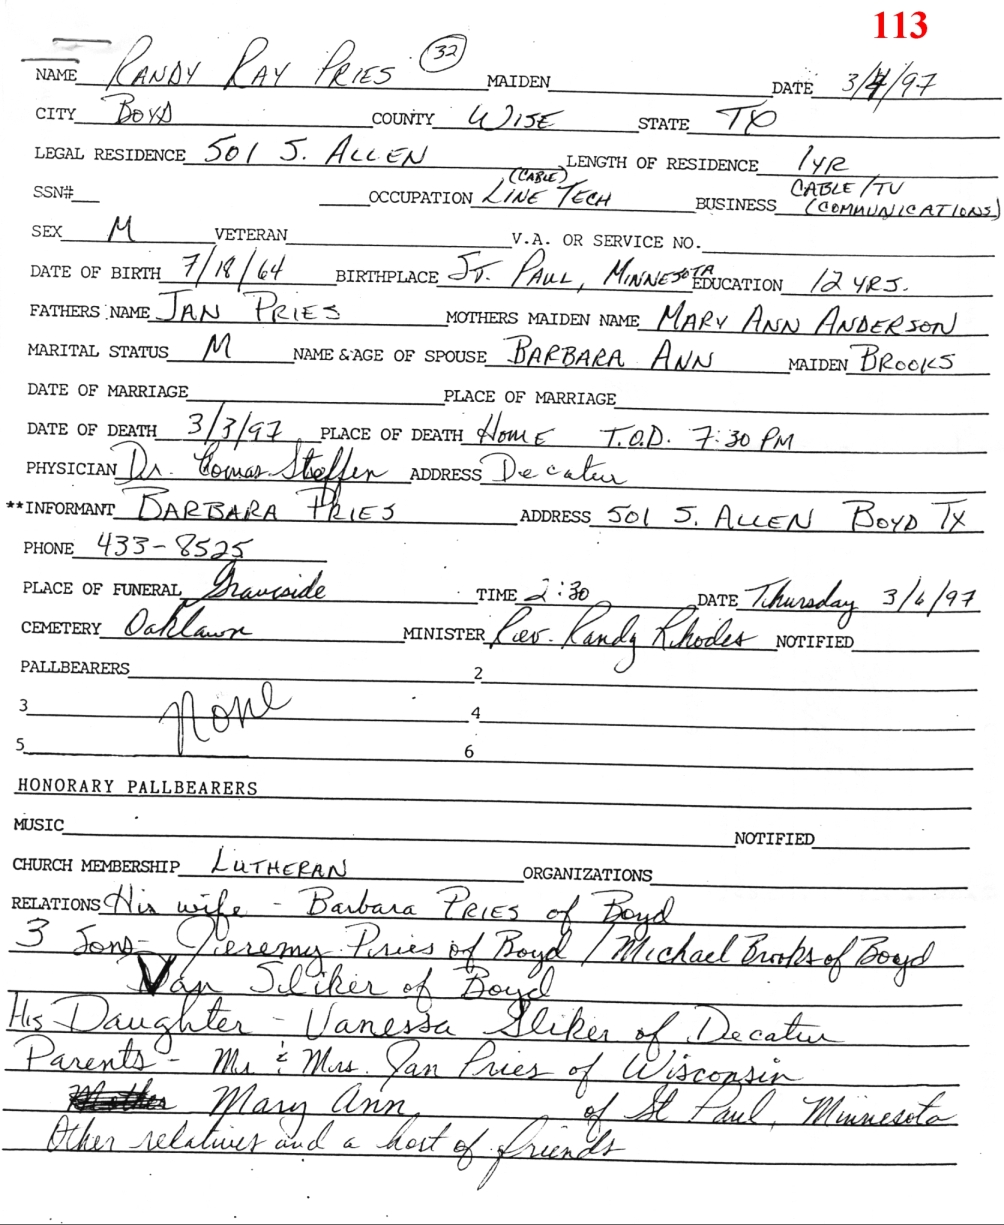 113
NAME RANDY RAY PRIES 32 MAIDEN DATE 3/4/97
CITY BOYD COUNTY WISE STATE TX
LEGAL RESIDENCE 501 S. ALLEN LENGTH OF RESIDENCE 1 YR
SSN# OCCUPATION (CABLE) LINE TECH BUSINESS CABLE/TV (COMMUNICATIONS)
SEX M VETERAN V.A. OR SERVICE NO.
DATE OF BIRTH 7/18/64 BIRTHPLACE ST. PAUL, MINNESOTA EDUCATION 12 YRS.
FATHERS NAME JAN PRIES MOTHERS MAIDEN NAME MARY ANN ANDERSON
MARITAL STATUS M NAME & AGE OF SPOUSE BARBARA ANN MAIDEN BROOKS
DATE OF MARRIAGE PLACE OF MARRIAGE
DATE OF DEATH 3/3/97 PLACE OF DEATH HOME T.O.D. 7:30 PM
PHYSICIAN Dr. Steffen ADDRESS Decatur
**INFORMANT BARBARA PRIES ADDRESS 501 S. ALLEN BOYD TX
PHONE 433-8525
PLACE OF FUNERAL Graveside TIME 2:30 DATE Thursday 3/6/97
CEMETERY Oaklawn MINISTER Rev. Randy Rhodes NOTIFIED
PALLBEARERS 2
3 None 4
5 6
HONORARY PALLBEARERS
MUSIC NOTIFIED
CHURCH MEMBERSHIP LUTHERAN ORGANIZATIONS
RELATIONS His wife - Barbara PRIES of Boyd
3 Sons - Jeremy Pries of Boyd / Michael Brooks of Boyd
Van Sliker of Boyd
His Daughter - Vanessa Sliker of Decatur
Parents - Mr & Mrs. Jan Pries of Wisconsin
Mary Ann of St Paul, Minnesota
Other relatives and a host of friends